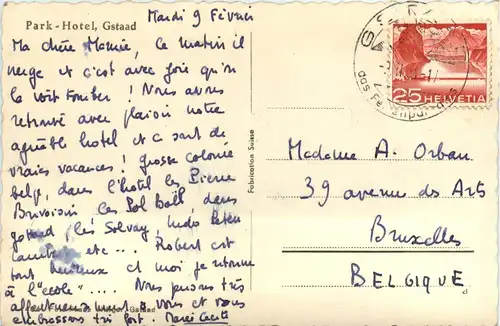 Park-Hotel, Gstaad
Mardi 9 Février
Ma chère Mamie, Ce matin il
neige et c'est avec joie qu'on
le voit tomber! Nous avons
retrouvé avec plaisir notre
agréable hotel et ce sont de
vraies vacances! Grosse colonie
belge, dans l'hotel les Pierre
les Pol Boël, dans
Gstaad les Solvay,
etc.... Robert est
tout heureux et moi je retourne
à l'"école".... Nous pensons très
affectueusement à vous et vous
embrassons très fort. Marie Cécile
Gstaad
Fabrication Suisse
GSTAAD
25 HELVETIA
Madame A. Orban
39 avenue des Arts
Bruxelles
BELGIQUE